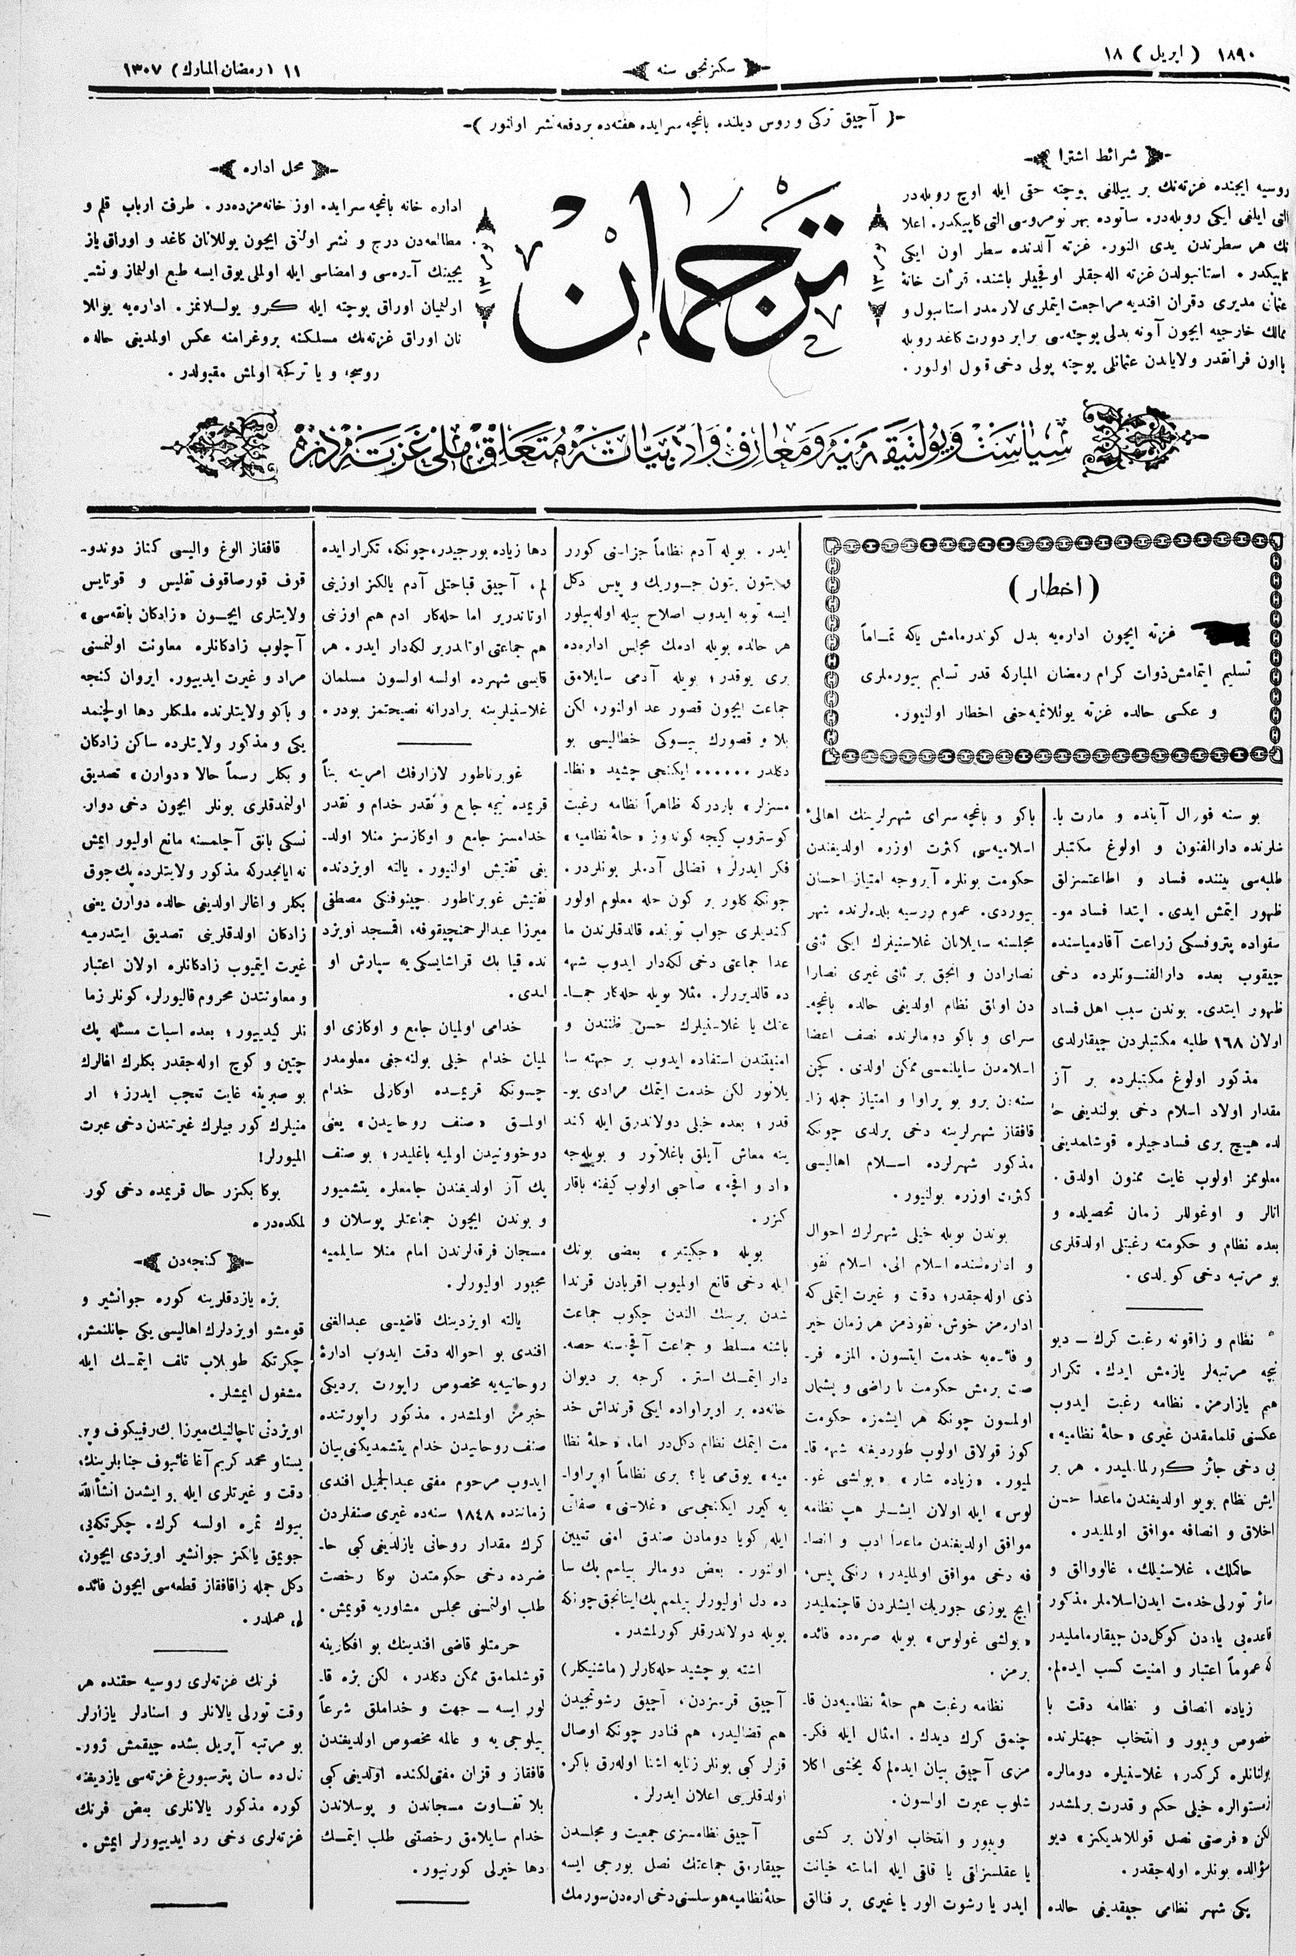 ١٨٩٠ ( اپریل ) ١٨
سكزنجی سنه
١١ (رمضان المبارك) ١٣٠٧
-{ آچیق تركی و روس دیلنده باغچه سرایده هفته‌ده بر دفعه نشر اولنور )-
شرائط اشترا
روسیه ایچنده غزته‌نك بر ییللغی پوچته حقی ایله اوچ روبله‌در
التی ایلغی ایكی روبله‌در. ساتوده بهر نومروسی التی كاپیكدر. اعلا
نك هر سطرندن یدی النور. غزته آلدنده سطر اون ایكی
كاپیكدر. استانبولدن غزته اله‌جقلر اوقجیلر باشنده قرأت خانهٔ
ترجمان
محل اداره
اداره خانه باغچه سرایده اوز خانه‌مزده‌در. طرفت ارباب قلم و
مطالعه‌دن درج و نشر اولنق ایچون یوللانان كاغد و اوراق یاز
یجینك آدره‌سی و امضاسی ایله اولملی یوق ایسه طبع اولنماز و نشر
اولنمیان اوراق پوچته ایله كرو یوللانمز. اداره‌یه یوللا
نان اوراق غزته‌نك مسلكنه پروغرامنه عكس اولمدیغی حالده
روسجه و یا تركجه اولمش مقبولدر.
سیاست و پولتیقه مدنیه و معارف و ادبیاته متعلق ملی غزته‌مزدر
( اخطار )
غزته ایچون اداره‌یه بدل كوندرمامش یاكه تماماً
تسلیم ایتمامش ذوات كرام رمضان المباركه قدر تسلیم بیورملری
و عكسی حالده غزته یوللانمیه‌جغی اخطار اولنیور.
بو سنه فورال آینده و مارت با
شلرنده دارالفنون و اولوغ مكتبلر
طلبه‌سی بیننده فساد و اطاعتسزلق
ظهور ایتمش ایدی. ابتدا فساد مو-
سقواده پتروفسكی زراعت آقادمیاسنده
چیقوب بعده دارالفنونلرده دخی
ظهور ایتدی. بوندن سبب اهل فساد
اولان ١٦٨ طلبه مكتبلردن چیقارلدی
مذكور اولوغ مكتبلرده بر آز
مقدار اولاد اسلام دخی بولندیغی حا
لده هیچ بری فسادجیلره قوشلمدیغی
معلوممز اولوب غایت ممنون اولدق.
انالر و اوغوللر زمان تحصیلده و
بعده نظام و حكومته رغبتلی اولدقلری
بو مرتبه دخی كورلدی.
نظام و زاقونه رغبت كرك ـ دیو
نیجه مرتبه‌لر یازمش ایدك. تكرار
هم یازارمز. نظامه رغبت ایدوب
عكسنی قلمامقدن غیری «حلهٔ نظامیه»
یی دخی جائز كورلماملیدر. هر بر
ایش نظام بویو اولدیغندن ماعدا حسن
اخلاق و انصافه موافق اولملیدر.
حاكملك، غلاسنیلك، غالووالق و
سائر تورلی خدمت ایدن اسلاملر مذكور
قاعده‌یی یاددن كوكل‌دن چیقارماملیدر
كه عموماً اعتبار و امنیت كسب ایده‌لم.
زیاده انصاف و نظامه دقت با
خصوص ویبور و انتخاب جهتلرنده
بولنانلره كركدر؛ غلاسنیلره دومالره
زمستوالره خیلی حكم و قدرت برلمشدر
لكن «فرصتی نصل قوللاندیكز» دیو
سؤالده بونلره اوله‌جقدر.
یكی شهر نظامی چیقدیغی حالده
باكو و باغچه سرای شهرلرینك اهالیٔ
اسلامیه‌سی كثرت اوزره اولدیغندن
حكومت بونلره آیروجه امتیاز احسان
بیوردی. عموم روسیه بلده‌لرنده شهر
مجلسنه سایلانان غلاسنیلرك ایكی ثلثی
نصارادن و انجق بر ثلثی غیری نصارا
دن اولمق نظام اولدیغی حالده باغچه-
سرای و باكو دومالرنده نصف اعضا
اسلامدن سایلنمسی ممكن اولدی. كچن
سنه‌دن برو بو پراوا و امتیاز جمله زا-
قافقاز شهرلرینه دخی برلدی چونكه
مذكور شهرلرده اسلام اهالیسی
كثرت اوزره بولنیور.
بوندن بویله خیلی شهرلرك احوال
و اداره‌سنده اسلام الی، اسلام نفو
ذی اوله‌جقدر؛ دقت و غیرت ایتملی كه
اداره‌مز خوش، نفوذمز هر زمان خیر
و فائده‌یه خدمت ایتسون. المزه فر-
صت برمش حكومت نا راضی و پشمان
اولمسون چونكه هر ایشمزه حكومت
كوز قولاق اولوب طوردیغنه شبهه قا-
لمیور. «زیاده شار» «بولشی غو-
لوس» ایله اولان ایشلر هپ نظامه
موافق اولدیغندن ماعدا ادب و انصا-
فه دخی موافق اولملیدر؛ رنكی پیس،
ایچ یوزی جوریك ایشلردن قاچنملیدر
«بولشی غولوس» بویله صره‌ده فائده
برمز.
نظامه رغبت هم حلهٔ نظامیه‌دن قا-
چنمق كرك دیدك. امثال ایله فكر-
مزی آچیق بیان ایده‌لم كه یخشی اكلا
شلوب عبرت اولسون.
ویبور و انتخاب اولان بر كشی
یا عقلسزلقی یا قلقی ایله امانته خیانت
ایدر یا رشوت الور یا غیری بر فنالق
ایدر. بویله آدم نظاماً جزاسنی كورر
و بتون بتون جوریك و پیس دكل
ایسه توبه ایدوب اصلاح بیله اوله‌بیلور
هر حالده بویله ادمك مجلس اداره‌ده
یری یوقدر؛ بویله آدمی سایلامق
جماعت ایچون قصور عد اولنور، لكن
بلا و قصورك بیوكی خطالیسی بو
دكلدر...... ایكنجی چشید «نظا-
مسزلر» باردركه ظاهراً نظامه رغبت
كوستروب كیجه كوندوز «حلهٔ نظامیه»
فكر ایدرلر؛ قضالی آدملر بونلردر.
چونكه كلور بر كون حله معلوم اولور
كندیلری جواب توبنده قالدقلرندن ما
عدا جماعتی دخی لكه‌دار ایدوب شبهه
ده قالدیررلر. مثلا بویله حله‌كار جما-
عتك یا غلاسنیلرك حسن ظنندن و
امنیتندن استفاده ایدوب بر جهته سا
یلانور لكن خدمت ایتمك مرادی یو-
قدر؛ بعده خیلی دولاندرق ایله كند
ینه معاش آیلق باغلاتور و بویله‌جه
«اد و اقچه» صاحبی اولوب كیفنه باقار
كزر.
ایله دخی قانع اولمیوب اقربادن قرندا
شدن برینك الندن چكوب جماعت
باشنه مسلط و جماعت آقچه‌سنه حصه-
دار ایتمك استر. كرچه بر دیوان
خانه‌ده بر اوپراواده ایكی قرنداش خد
مت ایتمك نظام دكل‌در اما، «حلهٔ نظا
میه» یوق‌می یا؟ بری نظاماً اوپراوا-
یه كیرر ایكنجی‌سی «غلاسنی» صفاتی
ایله كویا دومادن صندق امنی تعیین
اولنور. بعض دومالر بیلمم پك سا
ده دل اولیورلر بیلمم پك اینانجق چونكه
بویله دولاندرقلر كورلمشدر.
اشته بو چشید حله‌كارلر (ماشنیكلر)
آچیق قرسزدن، آچیق رشوتجیدن
هم قضالیدر، هم فنادر چونكه اوصال
قزلر كبی بونلر زنایه اشنا اوله‌رق باكر.
اولدقلرینی اعلان ایدرلر.
آچیق نظامسزی جمعیت و مجلسدن
چیقارمق جماعتك نصل بورجی ایسه
حلهٔ نظامیه هوسلسنی دخی اره‌دن سورمك
دها زیاده بورجیدر، چونكه، تكرار ایده
لم، آچیق قباحتلی آدم یالكز اوزینی
اوتاندریر اما حله‌كار ادم هم اوزنی
هم جماعتی اوتاندیر لكه‌دار ایدر. هر
قایسی شهرده اولسه اولسون مسلمان
غلاسنیلرینه برادرانه نصیحتمز بودر.
غوبرناطور لازارفك امرینه بناً
قریمده نیجه جامع و نقدر خدام و نقدر
خدامسز جامع و اوكازسز منلا اولد-
یغی تفتیش اولنیور. یالته اویزدنده
تفتیش غوبرناطور چینوفنكی مصطفی
میرزا عبدالرحمنچیقوفه، اقمسجد اویزد
نده قیا بك قراشایسكی‌یه سپارش او
لندی.
خدامی اولمیان جامع و اوكازی او
لمیان خدام خیلی بولنه‌جغی معلومدر
چونكه قریمده اوكازلی خدام
اولمق «صنف روحانیدن» یعنی
دوخوونیدن اولمیه باغلیدر؛ بو صنف
پك آز اولدیغندن جامعلره یتشمیور
و بوندن ایچون جماعتلر پوسلان و
مسجان فرقه‌لرندن امام منلا سایلمیه
مجبور اولیورلر.
یالته اویزدینك قاضیسی عبدالغنی
افندی بو احواله دقت ایدوب ادارهٔ
روحانیه‌یه مخصوص راپورت بردیكی
خبرمز اولمشدر. مذكور راپورتنده
صنف روحانیدن خدام یتشمدیكنی بیان
ایدوب مرحوم مفتی عبدالجمیل افندی
زماننده ١٨٤٨ سنه‌ده غیری صنفلردن
كرك مقدار روحانی یازلدیغی كبی حا-
ضرده دخی حكومتدن بوكا رخصت
طلب اولنمسنی مجلس مشاوریه قویمش.
حرمتلو قاضی افندینك بو افكارینه
قوشلمامق ممكن دكلدر. لكن بزه قا-
لور ایسه ـ جهت و خداملق شرعاً
بیلوجی‌یه و عالمه مخصوص اولدیغندن
قافقاز و قزان مفتی‌لكنده اولدیغی كبی
بلا تفاوت مسجاندن و پوسلاندن
خدام سایلامق رخصتی طلب ایتمك
دها خیرلی كورنیور.
قافقاز الوغ والیسی كناز دوندو-
قوف قورصاقوف تفلیس و قوتایس
ولایتلری ایچون «زادكان بانقه‌سی»
آچلوب زادكانلره معاونت اولنمسنی
مراد و غیرت ایدییور. ایروان كنجه
و باكو ولایتلرنده ملكلر دها اولچنمد
یكی و مذكور ولایتلرده ساكن زادكان
و بكلر رسماً حالا «دوارن» تصدیق
اولنمدقلری بونلر ایچون دخی دوار.
نسكی بانق آچلمسنه مانع اولیور ایمش
بكلر و اغالر اولدیغی حالده دوارن یعنی
زادكان اولدقلرینی تصدیق ایتدرمیه
غیرت ایتمیوب زادكانلره اولان اعتبار
و معاونتدن محروم قالیورلر. كونلر زما
نلر كیدییور؛ بعده اسبات مسئله پك
چتین و كوچ اوله‌جقدر بكلرك اغالرك
بو صبرینه غایت تعجب ایدرز؛ ار
منیلرك كورجیلرك غیرتندن دخی عبرت
المیورلر!
بوكا بكزر حال قریمده دخی كور.
لمكده‌در.
كنجه‌دن
بزه یازدقلرینه كوره جوانشیر و
قومشو اویزدلرك اهالیسی یكی جانلنمش
چكرتكه طوپلاب تلف ایتمك ایله
مشغول ایمشلر.
دقت و غیرتلری ایله بو ایشدن انشأالله
بیوك ثمره اولسه كرك. چكرتكه‌یی
جویمق یالكز جوانشیر اویزدی ایچون
دكل جمله زاقافقاز قطعه‌سی ایچون فائده
لی عملدر.
فرنك غزته‌لری روسیه حقنده هر
وقت تورلی یالانلر و اسنادلر یازارلر.
بو مرتبه آپریل بشده چیقمش ژور-
نل ده سان پترسبورغ غزته‌سی یازدیغنه
كوره مذكور یالانلری بعض فرنك
غزته‌لری دخی رد ایدییورلر ایمش.